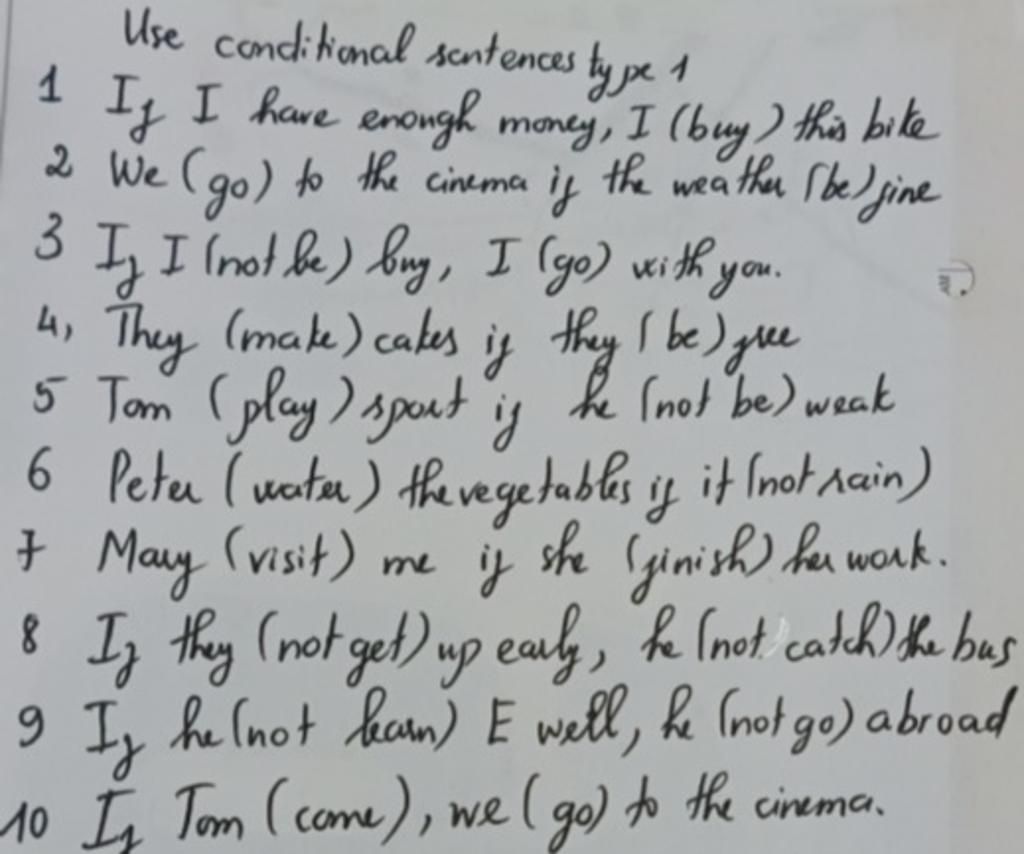 Use conditional sentences type 1
1 If I have enough money, I (buy) this bike
2 We (go) to the cinema if the weather (be) fine
3 If I (not be) buy, I (go) with you.
4, They (make) cakes if they (be) free
5 Tom (play) sport if he (not be) weak
6 Peter (water) the vegetables if it (not rain)
7 Mary (visit) me if she (finish) her work.
8 If they (not get) up early, he (not catch) the bus
9 If he (not learn) E well, he (not go) abroad
10 If Tom (come), we (go) to the cinema.